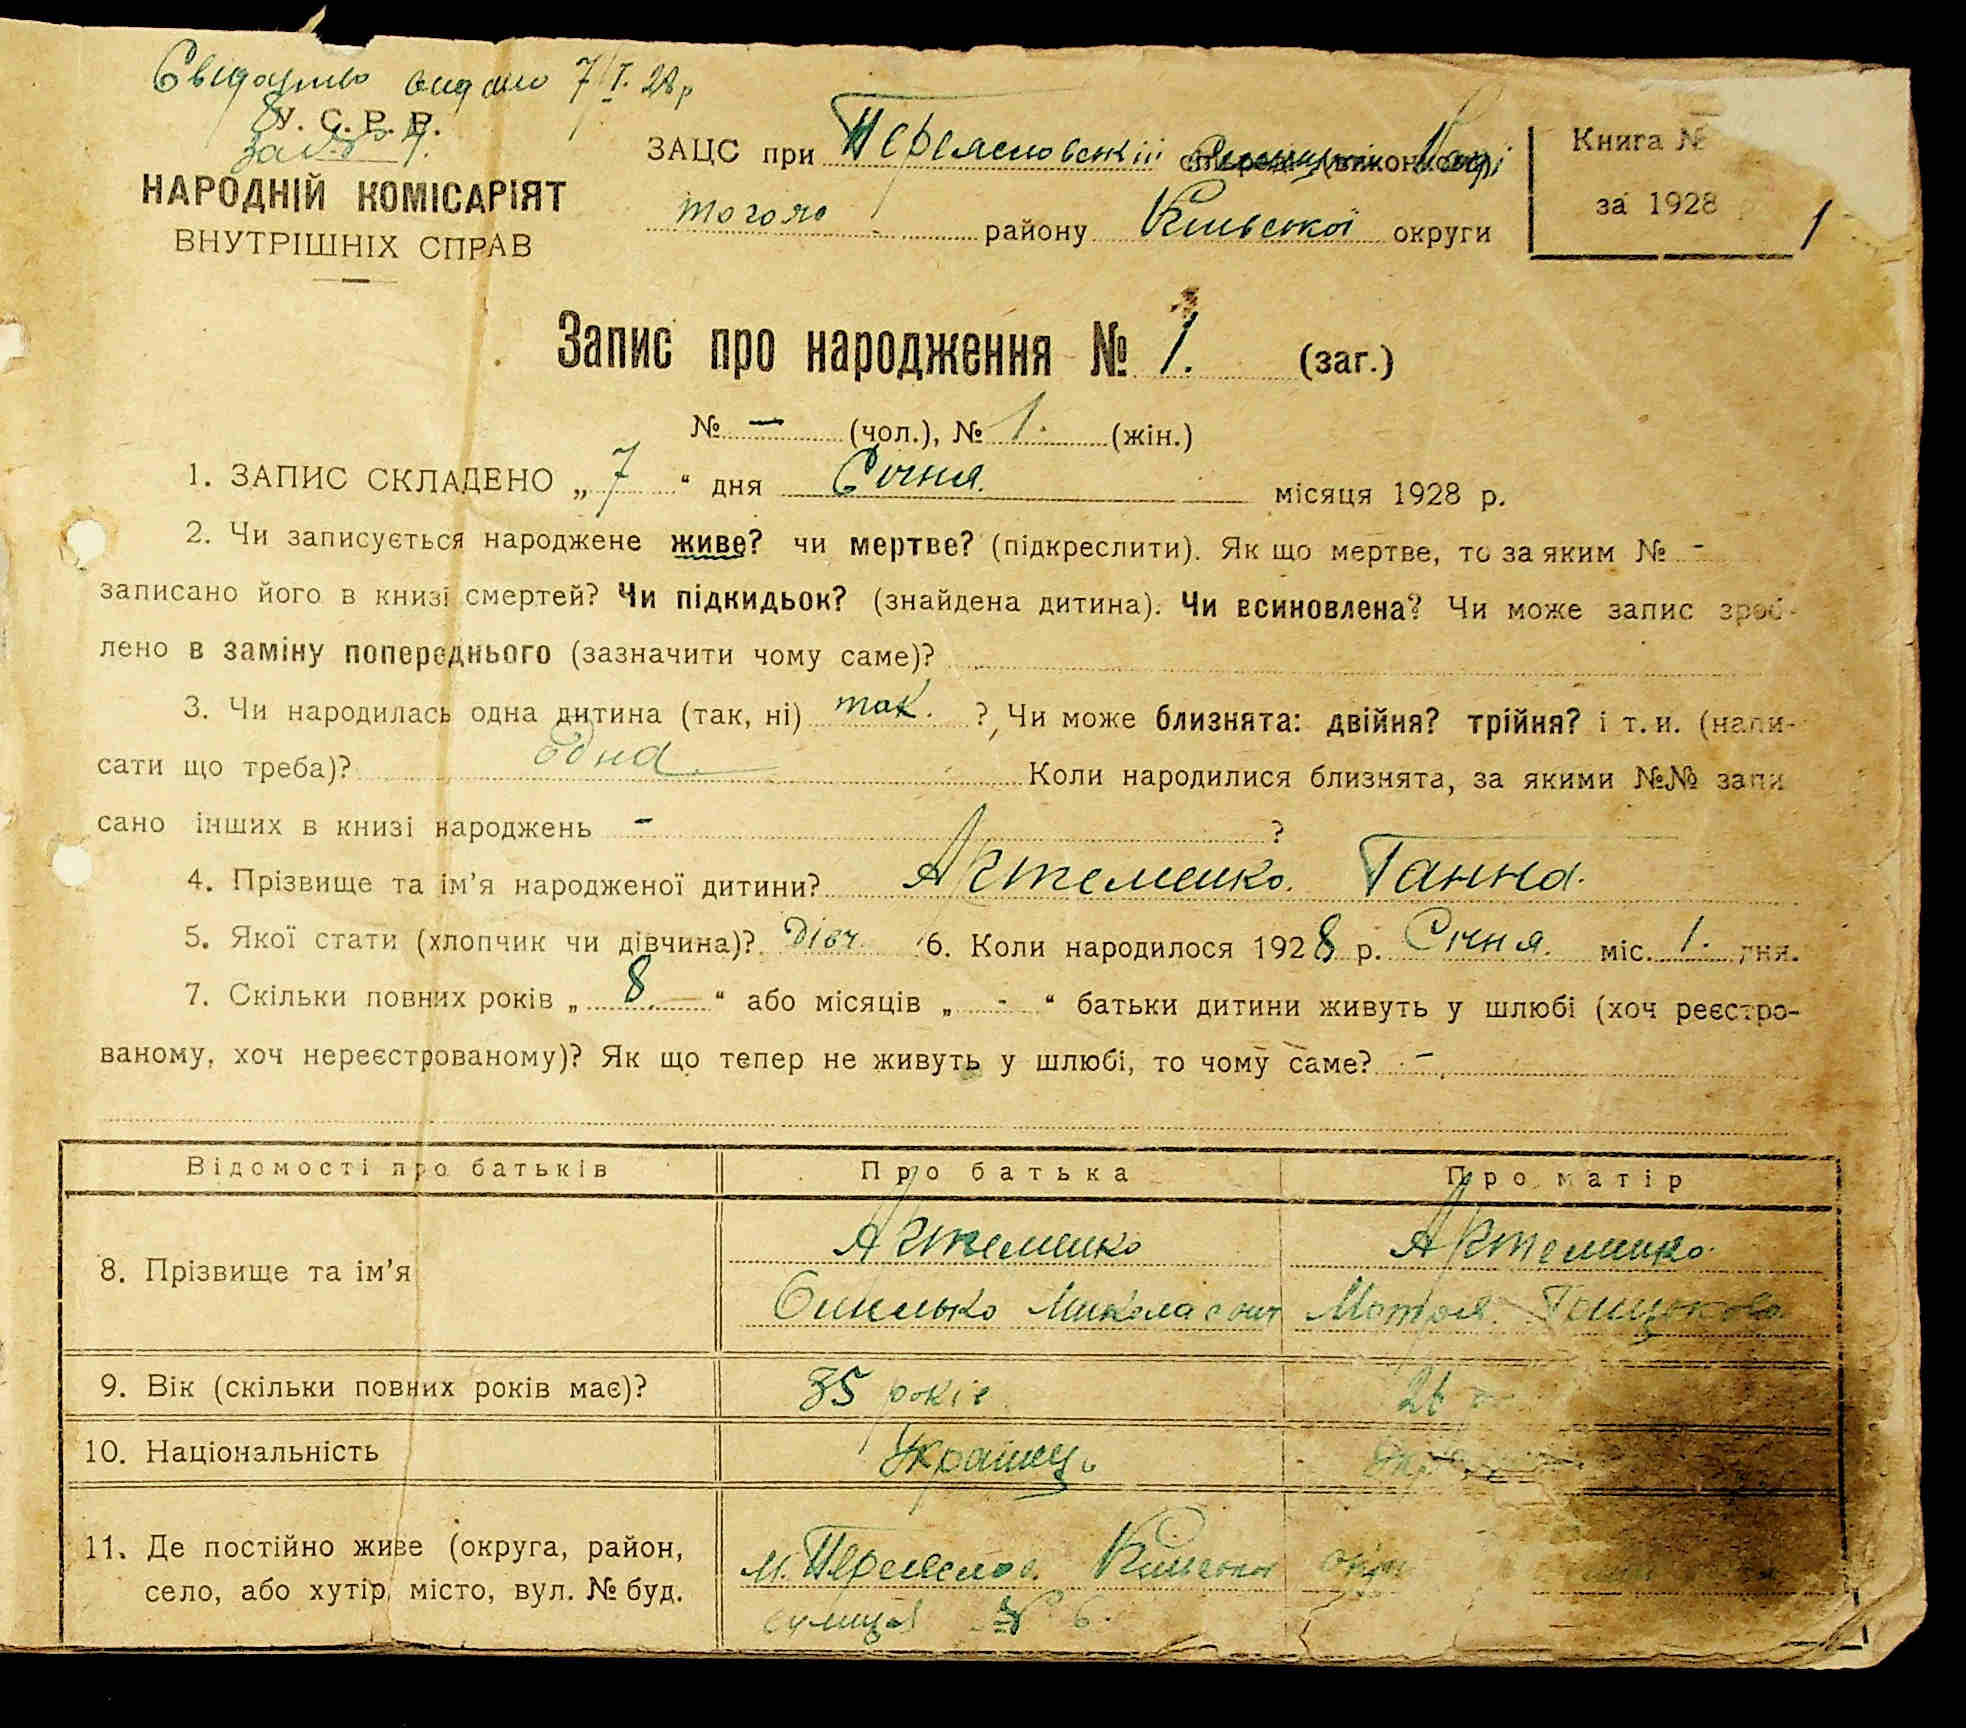 Свидоцтво видано 7/I. 28 р
У. С. Р. Р.
за № 1.
НАРОДНІЙ КОМІСАРІЯТ
ВНУТРІШНІХ СПРАВ
ЗАЦС при Переяславській Раді
того ж району Київської округи
Книга №
за 1928
1
Запис про народження № 1. (заг.)
№ — (чол.), № 1. (жін.)
1. ЗАПИС СКЛАДЕНО „ 7 “ дня Січня. місяця 1928 р.
2. Чи записується народжене живе? чи мертве? (підкреслити). Як що мертве, то за яким № -
записано його в книзі смертей? Чи підкидьок? (знайдена дитина). Чи всиновлена? Чи може запис зроб-
лено в заміну попереднього (зазначити чому саме)?
3. Чи народилась одна дитина (так, ні) так. ? Чи може близнята: двійня? трійня? і т. и. (напи-
сати що треба)? одна Коли народилися близнята, за якими №№ запи
сано інших в книзі народжень - ?
4. Прізвище та ім’я народженої дитини? Артеменко. Ганна.
5. Якої стати (хлопчик чи дівчина)? Дівч. 6. Коли народилося 1928 р. Січня. міс. 1. дня.
7. Скільки повних років „ 8. — “ або місяців „ - “ батьки дитини живуть у шлюбі (хоч реєстро-
ваному, хоч нереєстрованому)? Як що тепер не живуть у шлюбі, то чому саме? -
Відомості про батьків Про батька Про матір
8. Прізвище та ім’я Артеменко Артеменко
Омелько Миколаєвич Мотря
9. Вік (скільки повних років має)? 35 років 26 р
10. Національність Українець
11. Де постійно живе (округа, район,
село, або хутір, місто, вул. № буд.
м. Переяслов. Київської окр
вулиця № 6.